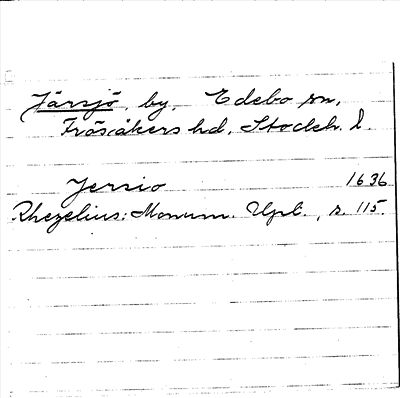 Järsjö, by, Edebo sn,
Frösåkers hd, Stockh. l.
Jersio 1636
Rhezelius: Monum. Upl., s. 115.